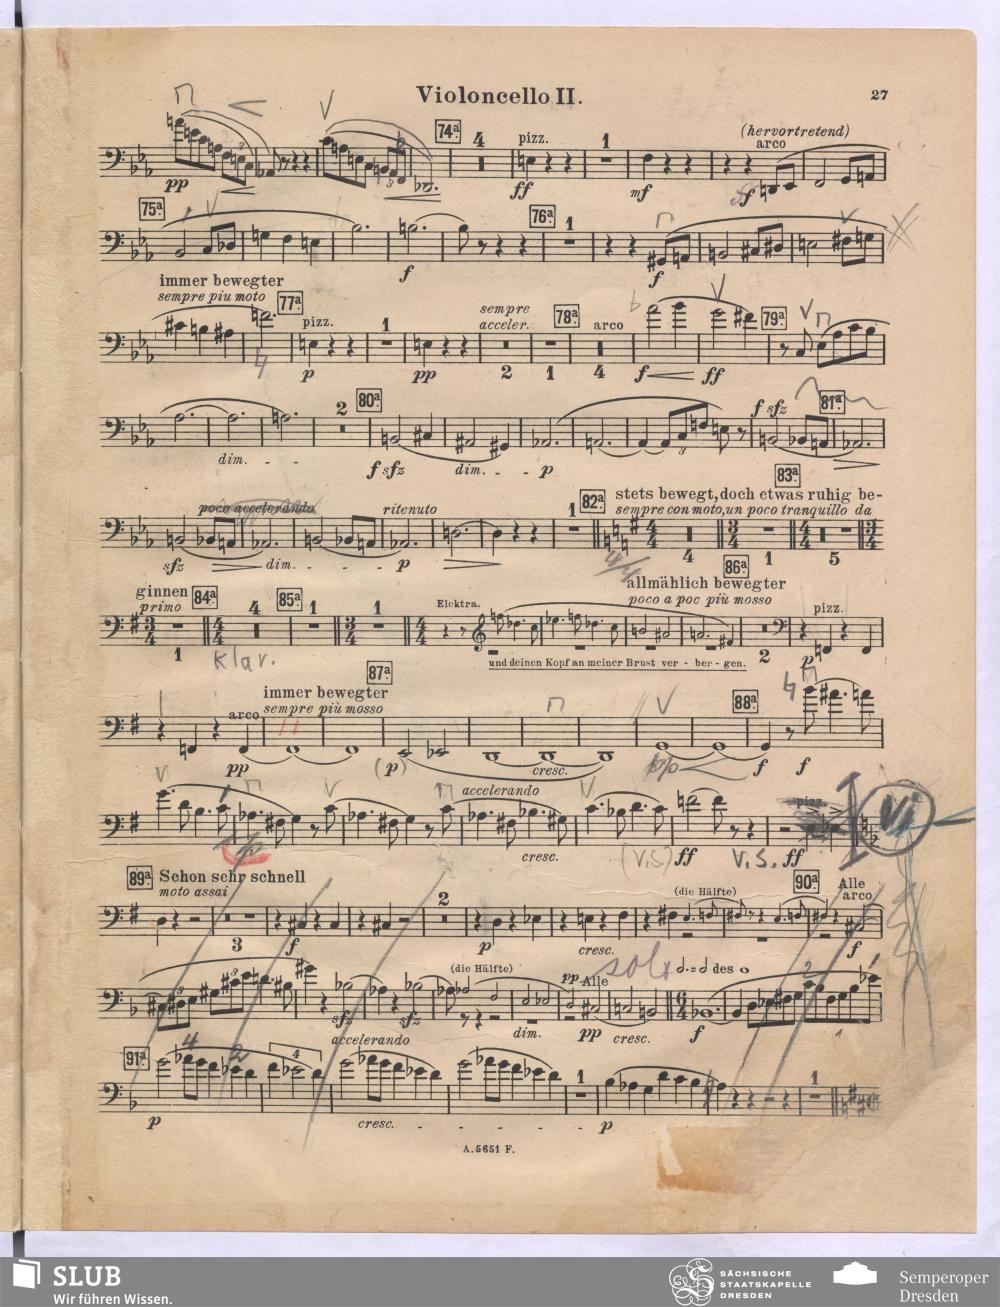 Violoncello II.
27
74ª. 4 pizz. 1 (hervortretend) arco
pp ff mf ff
75ª. 76ª. 1
f f
immer bewegter
sempre piu moto 77ª. pizz. 1 sempre acceler. 78ª. arco 79ª.
p pp 2 1 4 f ff
2 80ª. f sfz 81ª.
dim. - - f sfz dim. - - p
poco accelerando ritenuto 1 82ª. 83ª.
stets bewegt, doch etwas ruhig be-
sempre con moto, un poco tranquillo da
sfz dim. - - - p 4 1 5
ginnen
primo 84ª. 4 85ª. 1 1 Elektra. 86ª.
allmählich bewegter
poco a poc più mosso pizz.
1 Klar. und deinen Kopf an meiner Brust ver - ber - gen. 2 p
arco immer bewegter
sempre più mosso 87ª. 88ª.
pp (p) cresc. pp f f
accelerando pizz. Vi
cresc. (V.S.) ff V.S. ff
89ª. Schon sehr schnell
moto assai 2 (die Hälfte) 90ª. Alle arco
3 f p cresc. f
3 (die Hälfte) pp Alle solo des
sfz sfz dim. pp cresc. f
accelerando
91ª. 4 2 4 1 1
p cresc. - - - - - p
A. 5651 F.
SLUB
Wir führen Wissen.
SÄCHSISCHE
STAATSKAPELLE
DRESDEN
Semperoper
Dresden